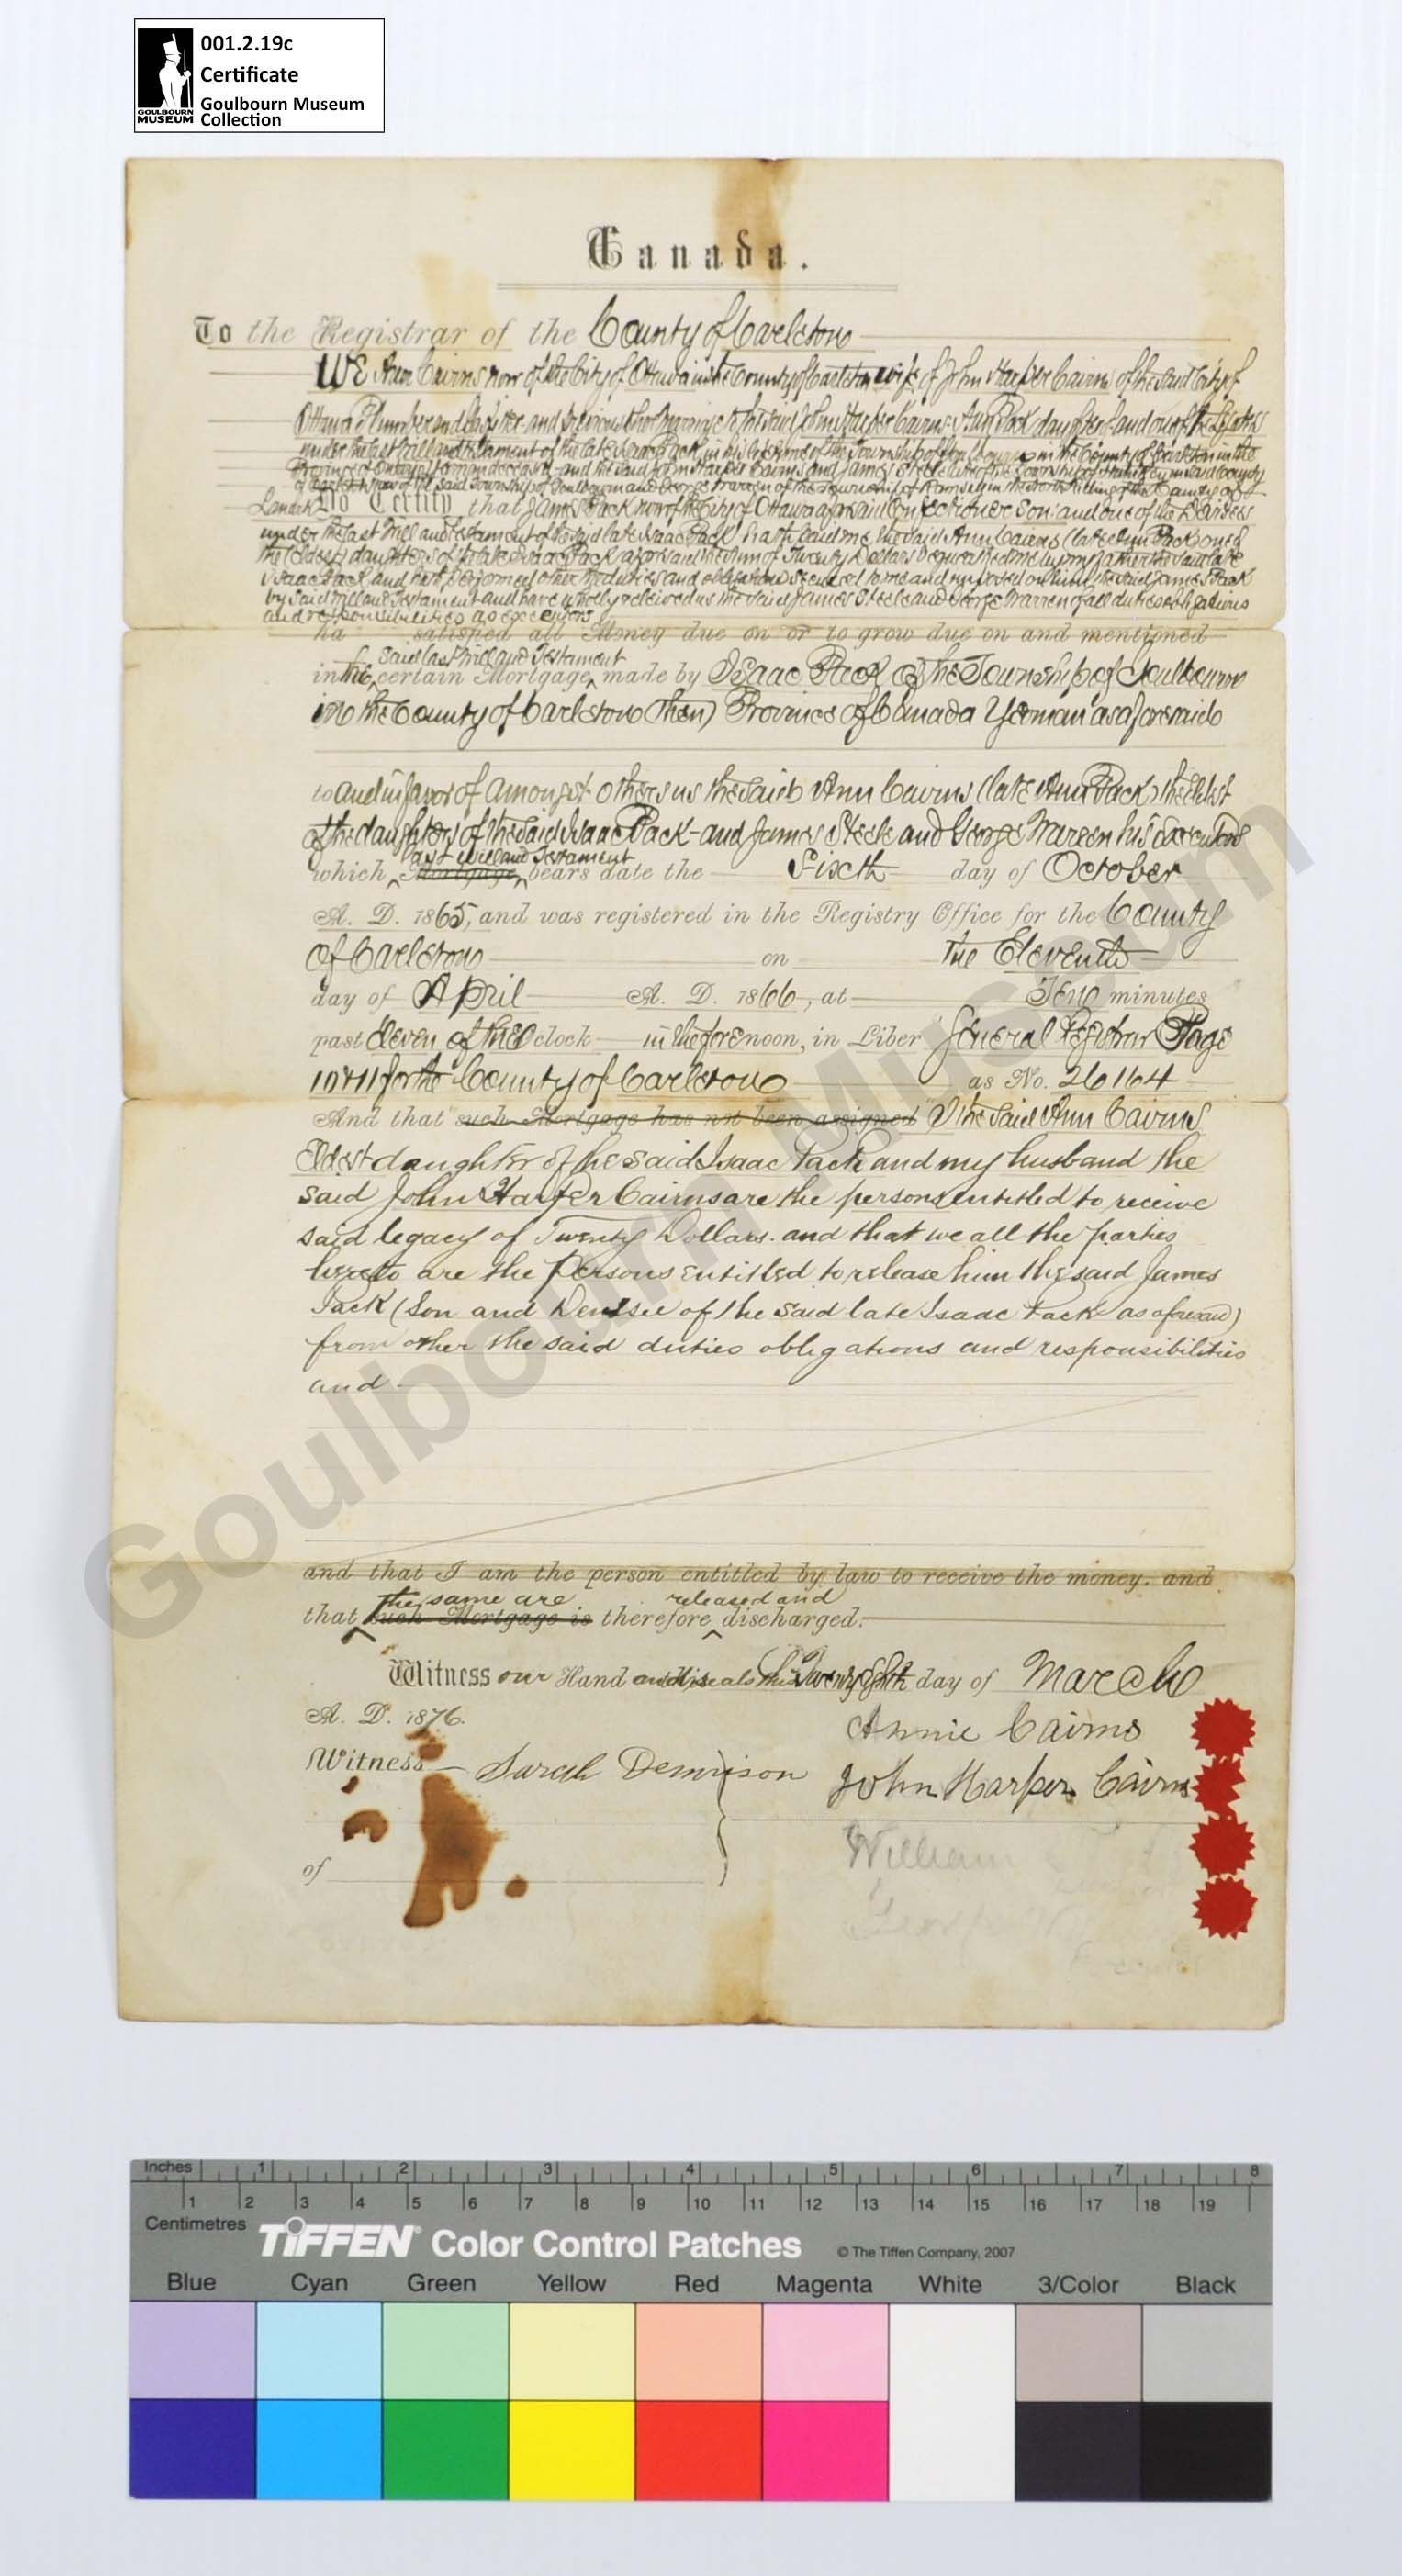 001.2.19c
Certificate
Goulbourn Museum
Collection
GOULBOURN
MUSEUM
Canada.
To the Registrar of the County of Carleton
WE Ann Cairns now of the City of Ottawa in the County of Carleton wife of John Harper Cairns of the said City of
Ottawa Plumber and and previous to her marriage to the said John Harper Cairns Ann Pack daughter and one of the Legatees
under the last Will and Testament of the late Isaac Pack in his lifetime of the Township of Goulbourn in the County of Carleton in the
Province of Ontario Yeoman deceased and the said John Harper Cairns and James Steele late of the Township of in said County
of Carleton now of the said Township of Goulbourn and George Warren of the Township of Ramsay in the North Riding of the County of
Lanark Do Certify that James Pack now of the City of Ottawa aforesaid Confectioner Son and one of the Devisees
under the last Will and Testament of the said late Isaac Pack hath paid me the said Ann Cairns (late Ann Pack) one of
the (eldest) daughters of the late Isaac Pack aforesaid the sum of Twenty Dollars bequeathed me by my father the said late
Isaac Pack and hath performed other the duties and obligations secured to me and imposed on him the said James Pack
by said Will and Testament and have wholly relieved us the said James Steele and George Warren of all duties obligations
and responsibilities as executors
ha satisfied all Money due on or to grow due on and mentioned
said last Will and Testament
in the certain Mortgage made by Isaac Pack of the Township of Goulbourn
in the County of Carleton (then) Province of Canada Yeoman as aforesaid
to and in favor of amongst others us the said Ann Cairns (late Ann Pack) the eldest
of the daughters of the said Isaac Pack - and James Steele and George Warren his Executors
last will and Testament
which Mortgage bears date the Sixth day of October
A. D. 1865, and was registered in the Registry Office for the County
of Carleton on The Eleventh
day of April A. D. 1866, at Ten minutes
past Eleven of the O'clock in the forenoon, in Liber General Registrar Page
10 & 11 for the County of Carleton as No. 26164
And that such Mortgage has not been assigned I the said Ann Cairns
Eldest daughter of the said Isaac Pack and my husband the
said John Harper Cairns are the persons entitled to receive
said legacy of Twenty Dollars. and that we all the parties
hereto are the persons entitled to release him the said James
Pack (Son and Devisee of the said late Isaac Pack as aforesaid)
from other the said duties obligations and responsibilities
and
and that I am the person entitled by law to receive the money. and
the same are released and
that such Mortgage is therefore discharged.
Witness our Hand and seals this Twenty eighth day of March
A. D. 1876.
Annie Cairns
Witness Sarah Dennison
John Harper Cairns
William
of
George
Inches 1 2 3 4 5 6 7 8
1 2 3 4 5 6 7 8 9 10 11 12 13 14 15 16 17 18 19
Centimetres
TIFFEN Color Control Patches © The Tiffen Company, 2007
Blue Cyan Green Yellow Red Magenta White 3/Color Black
Goulbourn Museum